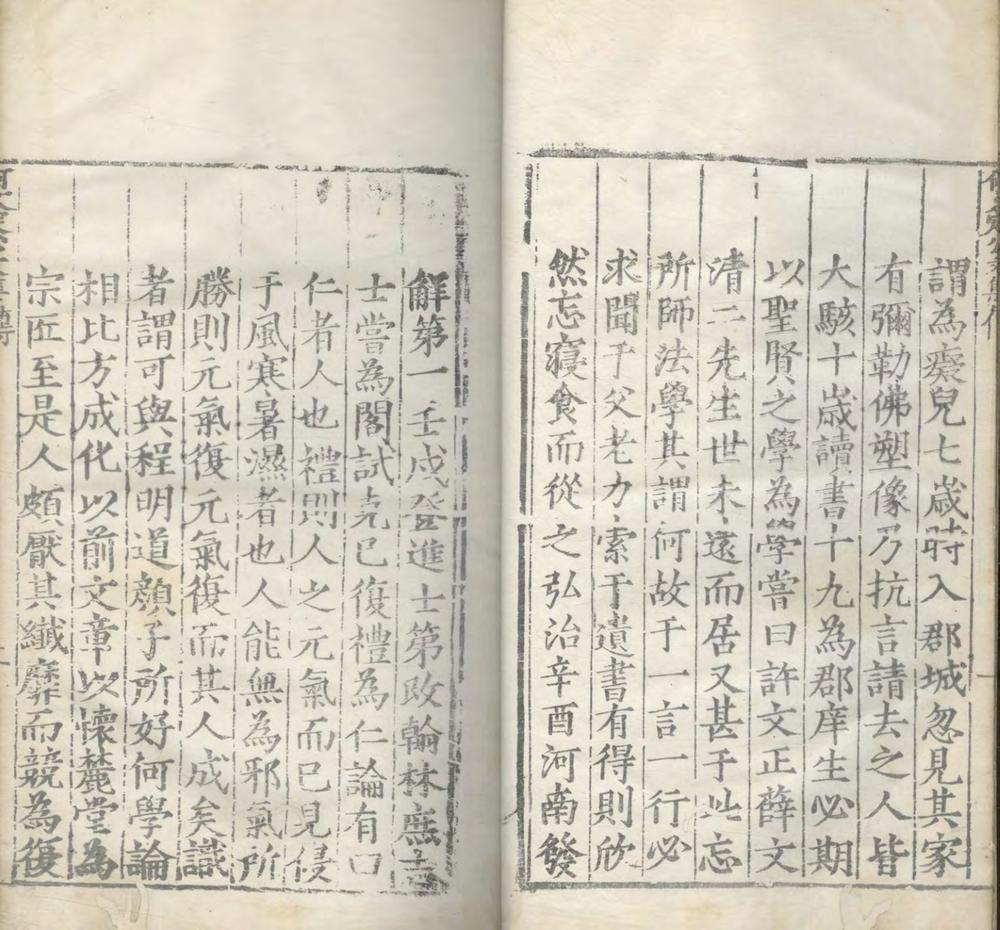 謂為癡兒七歲時入郡城忽見其家
有彌勒佛塑像乃抗言請去之人皆
大駭十歲讀書十九為郡庠生必期
以聖賢之學為學嘗曰許文正薛文
清二先生世未遠而居又甚于此忘
所師法學其謂何故于一言一行必
求聞于父老力索于遺書有得則欣
然忘寢食而從之弘治辛酉河南發
觧第一壬戌登進士第改翰林庶吉
士嘗為閣試克已復禮為仁論有曰
仁者人也禮則人之元氣而已見侵
于風寒暑濕者也人能無為邪氣所
勝則元氣復元氣復而其人成矣識
者謂可與程明道顔子所好何學論
相比方成化以前文章以懷麓堂為
宗匠至是人頗厭其纎靡而競為復